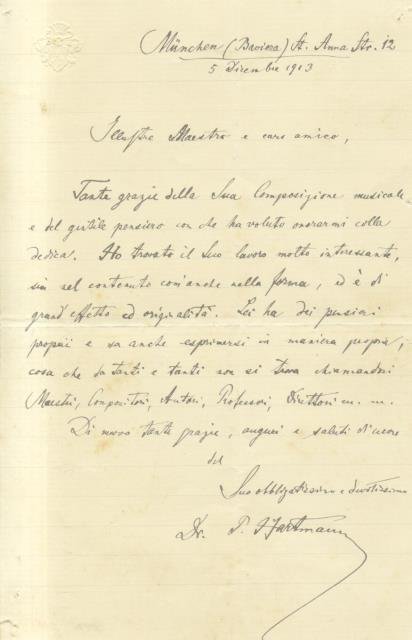 München (Baviera) St. Anna Str. 12
5 Dicembre 1913
Illustre Maestro e caro amico,
Tante grazie della Sua Composizione musicale
e del gentile pensiero con che ha voluto onorarmi colla
dedica. Ho trovato il Suo lavoro molto interessante,
sia nel contenuto com'anche nella forma, ed è di
grand'effetto ed originalità. Lei ha dei pensieri
proprii e sa anche esprimersi in maniera propria,
cosa che da tanti e tanti non si trova chiamandosi
Maestri, Compositori, Autori, Professori, Direttori
Di nuovo tante grazie, auguri e saluti di cuore
del
Suo obbligatissimo e devotissimo
Dr. P. Hartmann